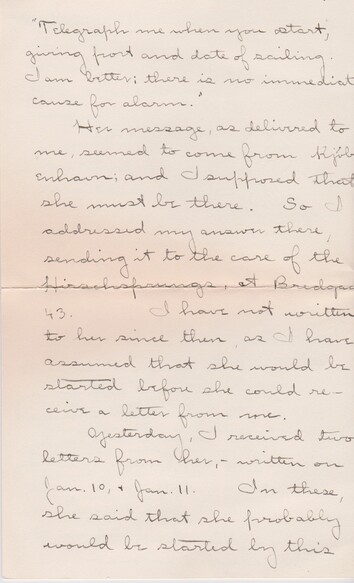 "Telegraph me when you start,
giving port and date of sailing.
I am better; there is no immediat
cause for alarm."
Her message, as delivered to
me, seemed to come from Kjöb
enhavn; and I supposed that
she must be there. So I
addressed my answer there,
sending it to the care of the
Hirschsprungs, at Bredgad
43. I have not written
to her since then, as I have
assumed that she would be
started before she could re-
ceive a letter from me.
Yesterday, I received two
letters from her,- written on
Jan. 10, & Jan. 11. In these,
she said that she probably
would be started by this